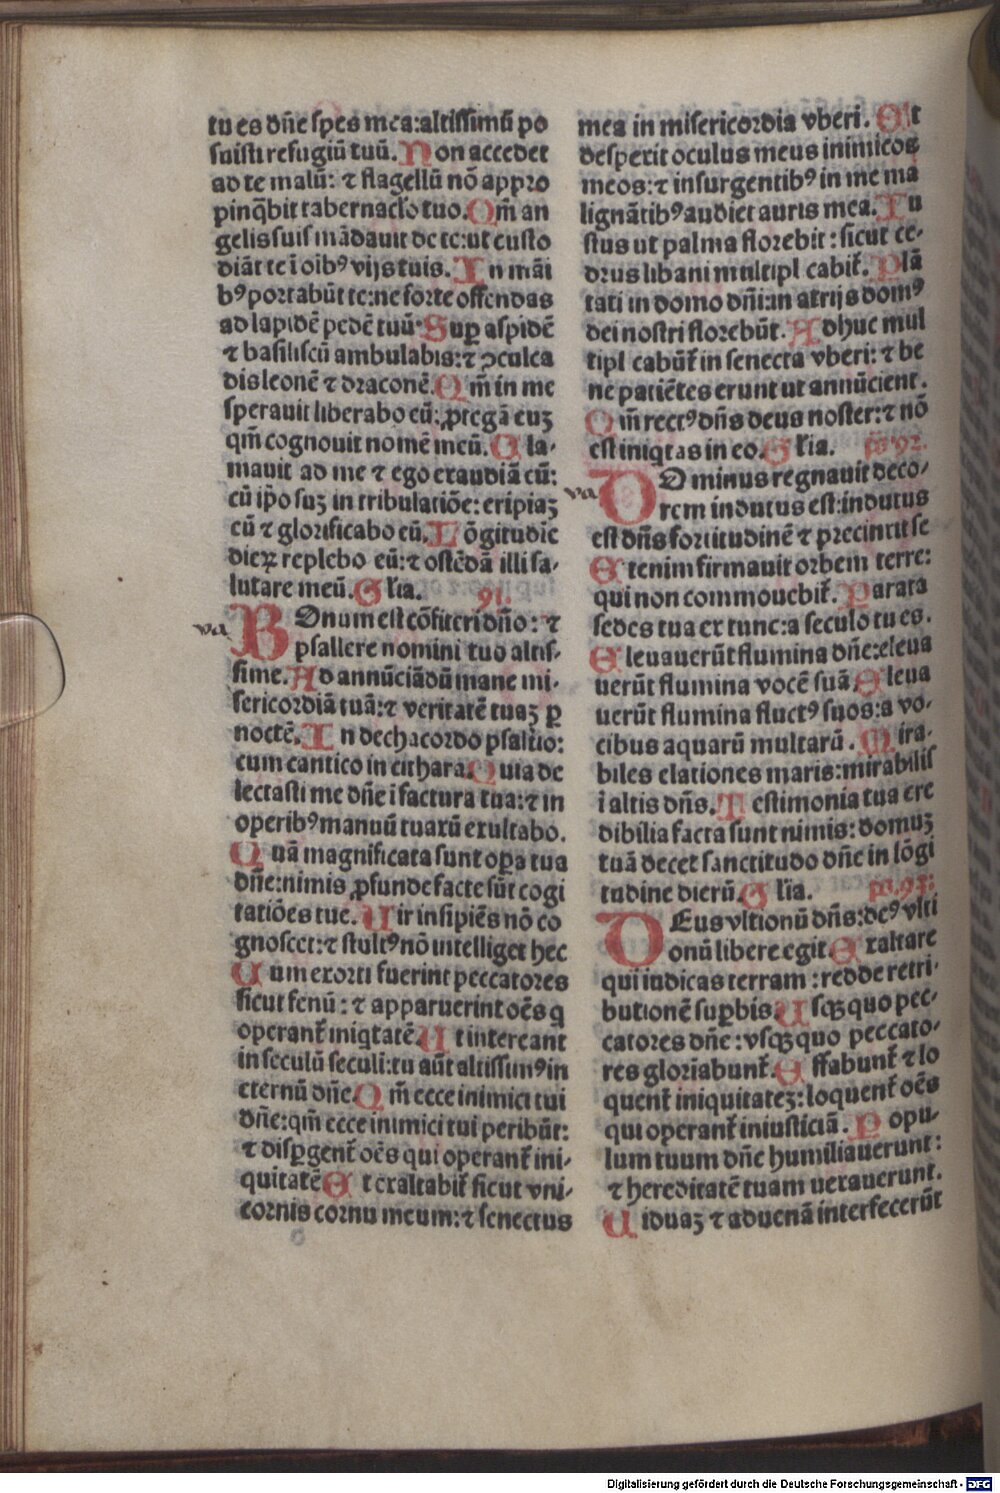 tu es dñe spes mea:altissimū po
suisti refugiū tuū. Non accedet
ad te malū: ⁊ flagellū nō appro
pinq̄bit tabernac̄lo tuo. Qm̄ an
gelis suis mādauit de te:ut custo
diāt te ī oibꝰ vijs tuis. In māi
bꝰ portabūt te:ne forte offendas
ad lapidē pedē tuū. Sup̲ aspidē
⁊ basiliscū ambulabis:⁊ ꝯculca
dis leonē ⁊ draconē. Qm̄ in me
sperauit liberabo eū:ꝓtegā euꝫ
qm̄ cognouit nomē meū. Cla-
mauit ad me ⁊ ego exaudiā eū:
cū ip̄o suꝫ in tribulatiōe:eripiaꝫ
eū ⁊ glorificabo eū. Lōgitudie
dieꝝ replebo eū:⁊ ostēdā illi sa-
lutare meū. Gl̄ia. 91.
va BOnum est cōfiteri dño: ⁊
psallere nomini tuo altis-
sime. Ad annūciādū mane mi-
sericordiā tuā:⁊ veritatē tuaꝫ ꝑ
noctē. In dechacordo psalt̄io:
cum cantico in cithara. Quia de
lectasti me dñe ī factura tua:⁊ in
operibꝰ manuū tuarū exultabo.
Quā magnificata sunt oꝑa tua
dñe:nimis ꝓfunde facte sūt cogi
tatiōes tue. Uir insipiēs nō co
gnoscet:⁊ stultꝰ nō intelliget hec
Cum exorti fuerint peccatores
sicut fenū: ⁊ apparuerint oēs q
operant̄ iniqtatē. Ut intereant
in seculū seculi:tu aūt altissimꝰ in
eternū dñe. Qm̄ ecce inimici tui
dñe:qm̄ ecce inimici tui peribūt:
⁊ disꝑgent̄ oēs qui operant̄ ini-
quitatē Et exaltabit̄ sicut vni-
cornis cornu meum:⁊ senectus
mea in misericordia vberi. Et
despexit oculus meus inimicos
meos:⁊ insurgentibꝰ in me ma
lignātibꝰ audiet auris mea. Iu
stus ut palma florebit:sicut ce-
drus libani multipl cabit̄. Plā
tati in domo dñi:in atrijs domꝰ
dei nostri florebūt. Adhuc mul
tipl cabūt̄ in senecta vberi: ⁊ be
ne patiētes erunt ut annūcient.
Qm̄ rectꝰ dñs deus noster:⁊ nō
est iniqtas in eo. Gl̄ia. ps 92.
va DOminus regnauit deco-
rem indutus est:indutus
est dñs fortitudinē ⁊ precinxit se
Etenim firmauit orbem terre:
qui non commouebit̄. Parata
sedes tua ex tunc:a seculo tu es.
Eleuauerūt flumina dñe:eleua
uerūt flumina vocē suā Eleua
uerūt flumina fluctꝰ suos:a vo-
cibus aquarū multarū. Mira-
biles elationes maris:mirabilis
ī altis dñs. Testimonia tua cre
dibilia facta sunt nimis:domuꝫ
tuā decet sanctitudo dñe in lōgi
tudine dierū. Gl̄ia. ps. 93:
DEus vltionū dñs:deꝰ vlti
onū libere egit. Exaltare
qui iudicas terram:redde retri-
butionē suꝑbis. Usqꝫ quo pec-
catores dñe:vsqꝫ quo peccato-
res gloriabunt̄. Effabunt̄ ⁊ lo
quent̄ iniquitateꝫ:loquent̄ oēs
qui operant̄ iniusticiā. Popu-
lum tuum dñe humiliauerunt:
⁊ hereditatē tuam uexauerunt.
Uiduaꝫ ⁊ aduenā interfecerūt
Digitalisierung gefördert durch die Deutsche Forschungsgemeinschaft - DFG